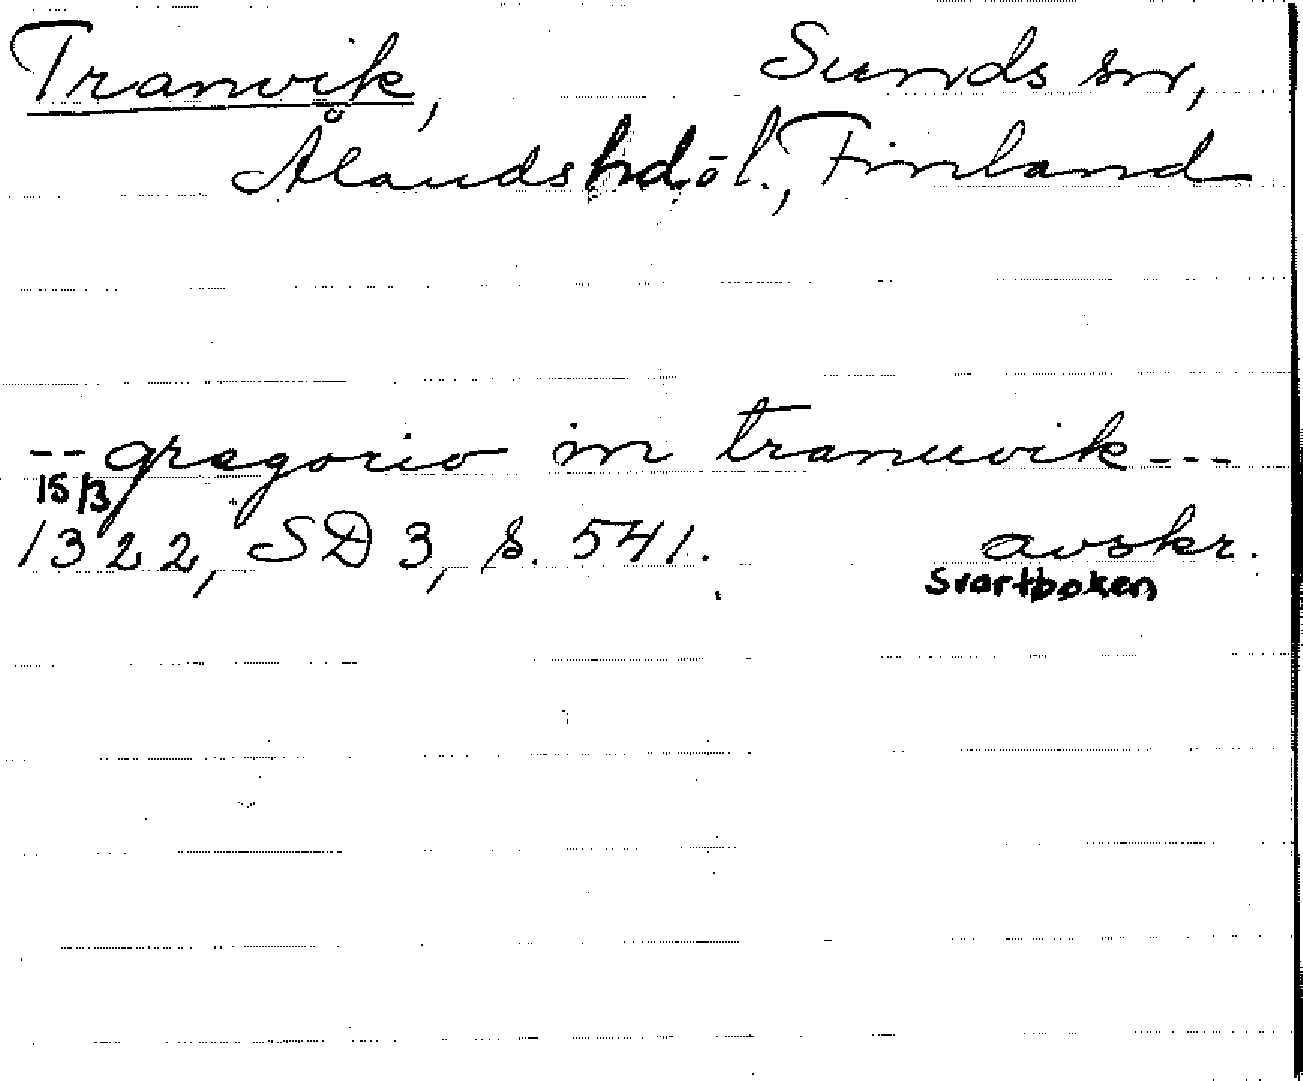 Tranvik, Sunds sn,
Ålands hd. o l., Finland
-- gregorio in tranuvik ---
15/3
1322, SD 3, s. 541. avskr.
Svartboken